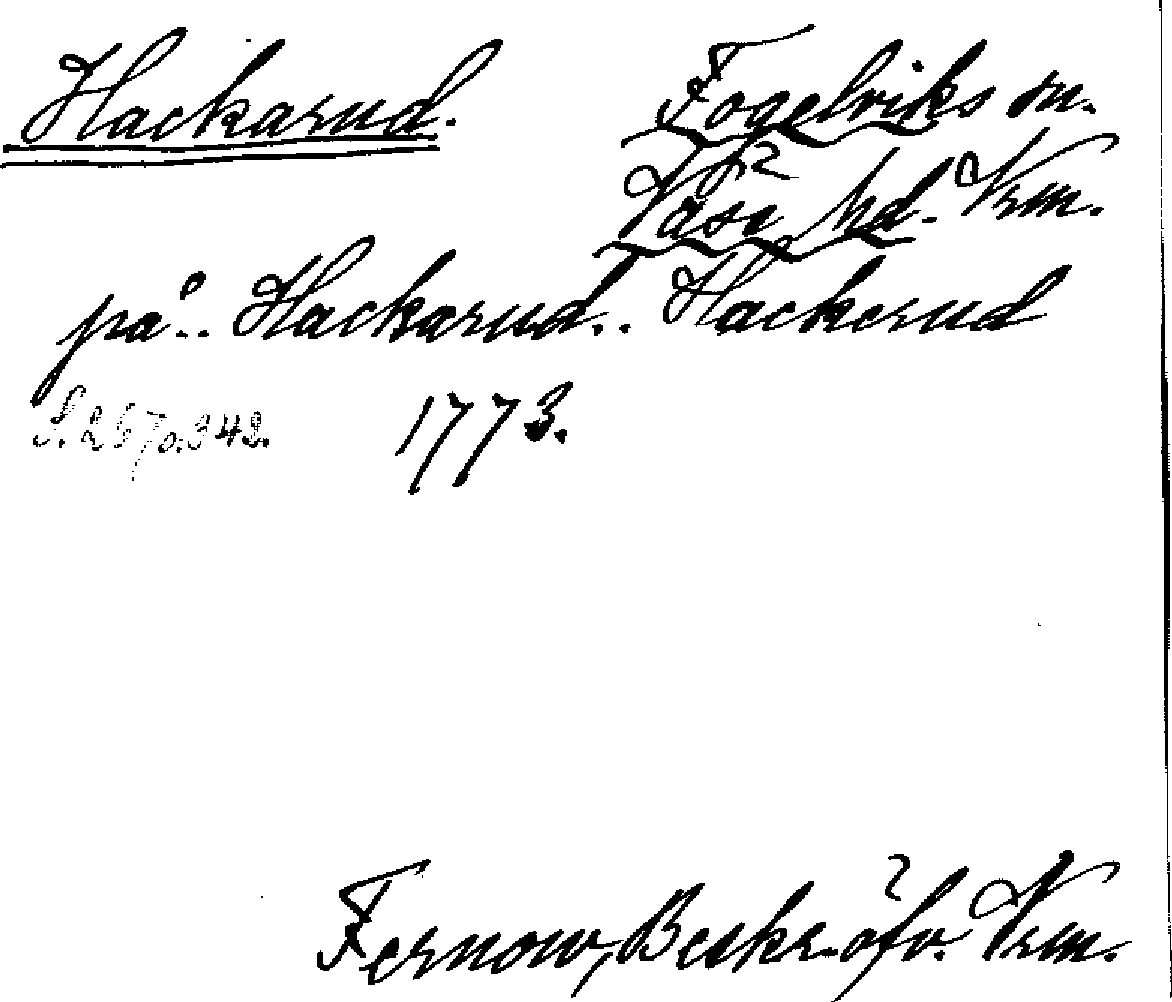 Hackarud.
Fogelviks sn.
Väse hd. Vrm.
på.. Hackarud.. Hackerud
S. 257 o. 342. 1773.
Fernow, Beskr. öfv. Vrm.